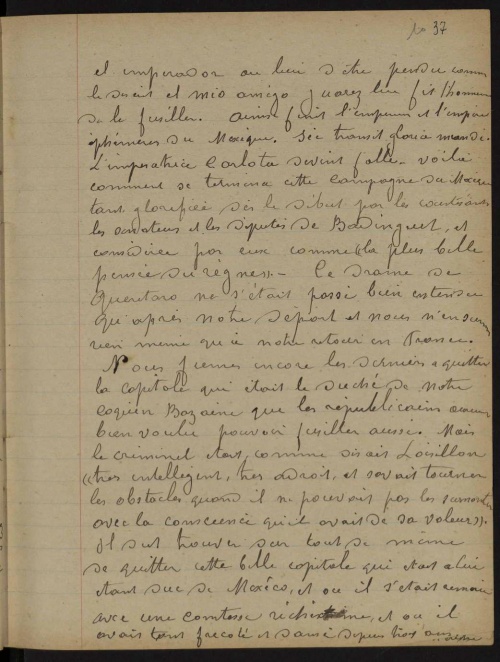 37
el imperador au lieu d'être pendu comme
le disait el mio amigo Juarez lui fit l'honneur
de le fusiller. Ainsi finit l'empereur et l'empire
éphémères du Mexique. Sic transit gloria mundi.
L'imperatrice Carlota devint folle. Voilà
comment se termina cette campagne du Mexique
tant glorifiée dès le début par les courtisans
les senateurs et les députés de Badinguet, et
considérée par eux comme «la plus belle
pensée du regne». - Ce drame de
Queretaro ne s'était passé bien entendu
qu'après notre départ et nous n'en sumes
rien même qu'à notre retour en France.
Nous fumes encore les derniers a quitter
la capitale qui était le duché de notre
coquin Bazaine que les républicains auraient
bien voulu pouvoir fusiller aussi. Mais
le criminel etait, comme disait Loisillon
«tres intelligent, tres adroit, et savait tourner
les obstacles quand il ne pouvait pas les surmonter
avec la conscience qu'il avait de sa valeur».
Il dut trouver dur tout de même
de quitter cette belle capitale qui etait a lui
etant duc de Mexico, et ou il s'était remarié
avec une comtesse richissime, et ou il
avait tant fricoté et dansé depuis trois ans